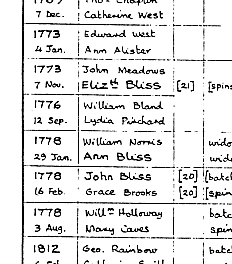 7 Dec. Catherine West
1773 Edward West
4 Jan. Ann Alister
1773 John Meadows
7 Nov. Elizth Bliss [21] [spins
1776 William Bland
12 Sep. Lydia Pinchard
1778 William Norris wido
29 Jan. Ann Bliss wido
1778 John Bliss [20] [batch
16 Feb. Grace Brooks [20] [spin
1778 Willm Holloway batc
3 Aug. Mary Caves spin
1812 Geo. Rainbow batc